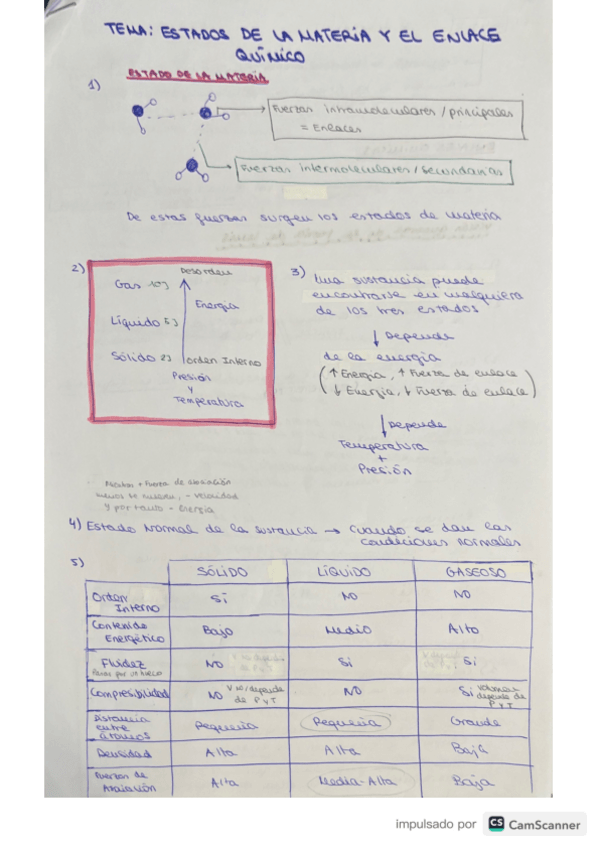 TEMA: ESTADOS DE LA MATERIA Y EL ENLACE
QUÍMICO
ESTADO DE LA MATERIA
1)
Fuerzas intramoleculares / principales
= Enlaces
Fuerzas intermoleculares / Secundarias
De estas fuerzas surgen los estados de materia
2)
Desorden
Gas 10J
Energía
Líquido 5J
Sólido 2J
Orden Interno
Presión
y
Temperatura
3) Una sustancia puede
encontrarse en cualquiera
de los tres estados
↓ Depende
de la energía
(↑ Energía, ↑ Fuerza de enlace
↓ Energía, ↓ Fuerza de enlace)
↓ Depende
Temperatura
+
Presión
Mientras + Fuerza de atracción
menos se mueven, - velocidad
y por tanto - energía
4) Estado Normal de la sustancia → Cuando se dan las
condiciones normales
5)
SÓLIDO LÍQUIDO GASEOSO
Orden Interno SÍ NO NO
Contenido Energético Bajo Medio Alto
Fluidez NO Si Si
Pasar por un hueco
Compresibilidad NO V no depende de P y T NO Si Volumen depende de P y T
Distancia entre átomos Pequeña Pequeña Grande
Densidad Alta Alta Baja
Fuerzas de Atracción Alta Media-Alta Baja
impulsado por CS CamScanner